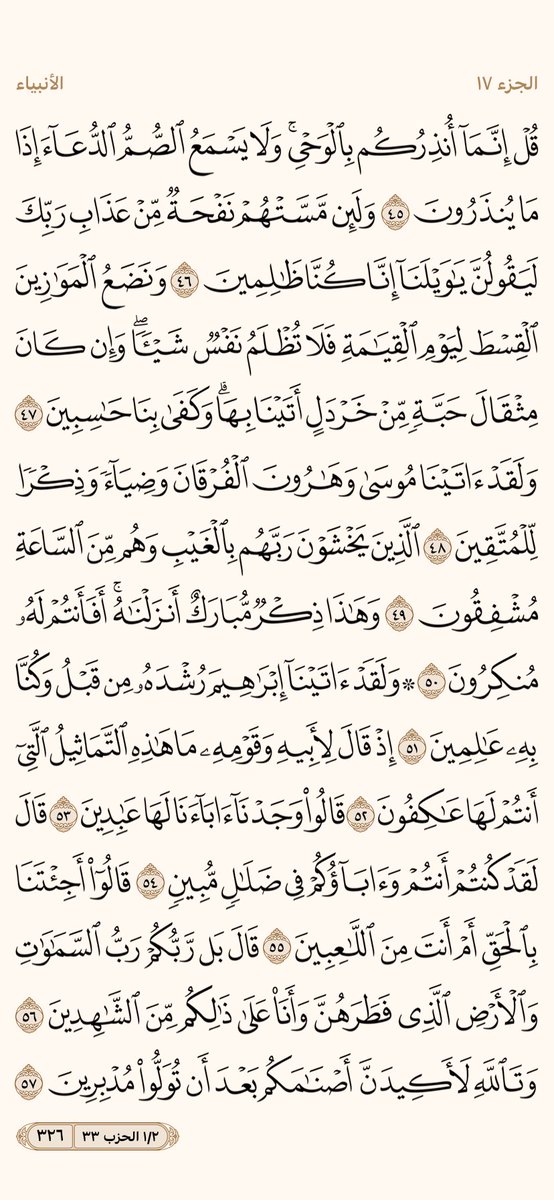 الجزء ١٧
الأنبياء
قُلْ إِنَّمَآ أُنذِرُكُم بِٱلْوَحْىِ ۚ وَلَا يَسْمَعُ ٱلصُّمُّ ٱلدُّعَآءَ إِذَا
مَا يُنذَرُونَ ٤٥ وَلَئِن مَّسَّتْهُمْ نَفْحَةٌ مِّنْ عَذَابِ رَبِّكَ
لَيَقُولُنَّ يَٰوَيْلَنَآ إِنَّا كُنَّا ظَٰلِمِينَ ٤٦ وَنَضَعُ ٱلْمَوَٰزِينَ
ٱلْقِسْطَ لِيَوْمِ ٱلْقِيَٰمَةِ فَلَا تُظْلَمُ نَفْسٌ شَيْـًٔا ۖ وَإِن كَانَ
مِثْقَالَ حَبَّةٍ مِّنْ خَرْدَلٍ أَتَيْنَا بِهَا ۗ وَكَفَىٰ بِنَا حَٰسِبِينَ ٤٧
وَلَقَدْ ءَاتَيْنَا مُوسَىٰ وَهَٰرُونَ ٱلْفُرْقَانَ وَضِيَآءً وَذِكْرًا
لِّلْمُتَّقِينَ ٤٨ ٱلَّذِينَ يَخْشَوْنَ رَبَّهُم بِٱلْغَيْبِ وَهُم مِّنَ ٱلسَّاعَةِ
مُشْفِقُونَ ٤٩ وَهَٰذَا ذِكْرٌ مُّبَارَكٌ أَنزَلْنَٰهُ ۚ أَفَأَنتُمْ لَهُۥ
مُنكِرُونَ ٥٠ ۞ وَلَقَدْ ءَاتَيْنَآ إِبْرَٰهِيمَ رُشْدَهُۥ مِن قَبْلُ وَكُنَّا
بِهِۦ عَٰلِمِينَ ٥١ إِذْ قَالَ لِأَبِيهِ وَقَوْمِهِۦ مَا هَٰذِهِ ٱلتَّمَاثِيلُ ٱلَّتِىٓ
أَنتُمْ لَهَا عَٰكِفُونَ ٥٢ قَالُوا۟ وَجَدْنَآ ءَابَآءَنَا لَهَا عَٰبِدِينَ ٥٣ قَالَ
لَقَدْ كُنتُمْ أَنتُمْ وَءَابَآؤُكُمْ فِى ضَلَٰلٍ مُّبِينٍ ٥٤ قَالُوٓا۟ أَجِئْتَنَا
بِٱلْحَقِّ أَمْ أَنتَ مِنَ ٱللَّٰعِبِينَ ٥٥ قَالَ بَل رَّبُّكُمْ رَبُّ ٱلسَّمَٰوَٰتِ
وَٱلْأَرْضِ ٱلَّذِى فَطَرَهُنَّ وَأَنَا۠ عَلَىٰ ذَٰلِكُم مِّنَ ٱلشَّٰهِدِينَ ٥٦
وَتَٱللَّهِ لَأَكِيدَنَّ أَصْنَٰمَكُم بَعْدَ أَن تُوَلُّوا۟ مُدْبِرِينَ ٥٧
١/٢ الحزب ٣٣ ٣٢٦